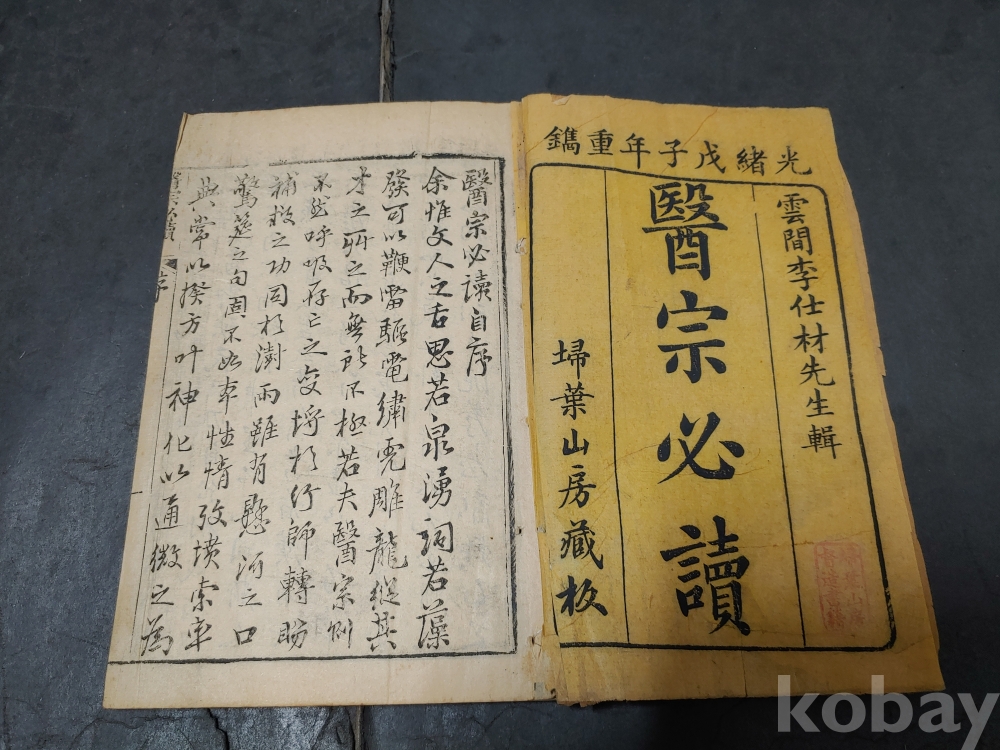 光緒戊子年重鐫
雲間李仕材先生輯
醫宗必讀
埽葉山房藏板
醫宗必讀自序
余惟文人之舌思若泉湧詞若藻
發可以鞭雷驅電繡虎雕龍縱其
才之所之而無所不極若夫醫宗則
不然呼吸存亡之變埒於行師轉盼
補救之功同於澍雨雖有懸河之口
驚筵之句固不如本性情攷墳索率
典常以揆方叶神化以通微之為
醫宗必讀 序
kobay